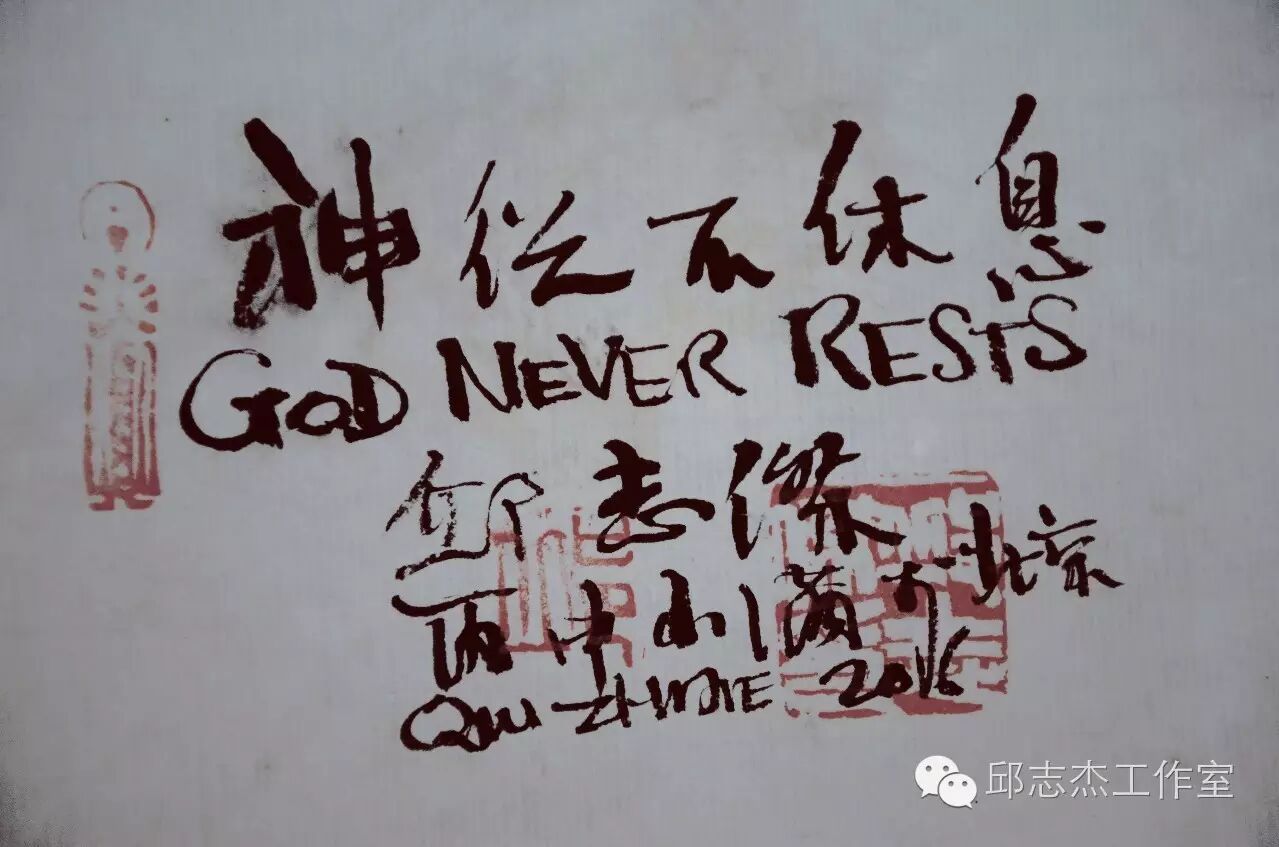 神從不休息
GOD NEVER RESTS
邱志傑
丙申小满于北京
QIU ZHIJIE 2016
邱志杰工作室